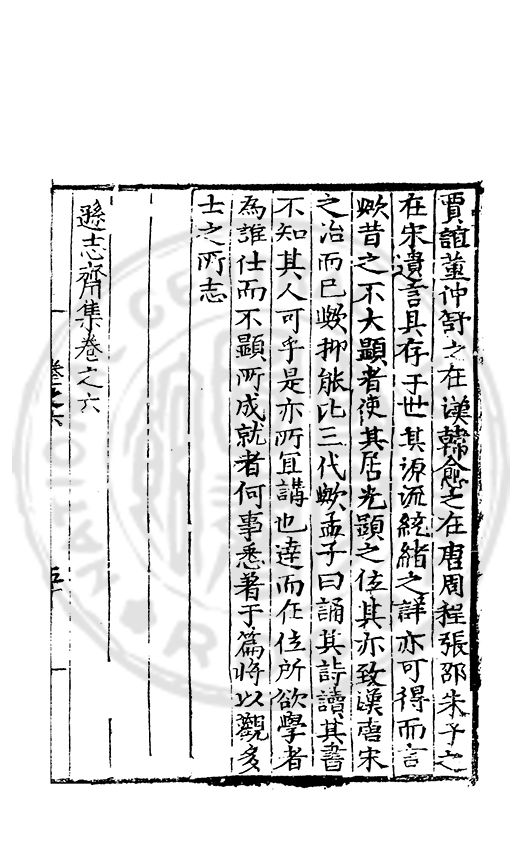 賈誼董仲舒之在漢韓愈之在唐周程張邵朱子之
在宋遺言具存于世其源流統緒之詳亦可得而言
歟昔之不大顯者使其居光顯之位其亦致漢唐宋
之治而已歟抑能比三代歟孟子曰誦其詩讀其書
不知其人可乎是亦所宜講也達而在位所欲學者
為誰仕而不顯所成就者何事悉著于篇將以觀多
士之所志
遜志齋集卷之六
卷之六